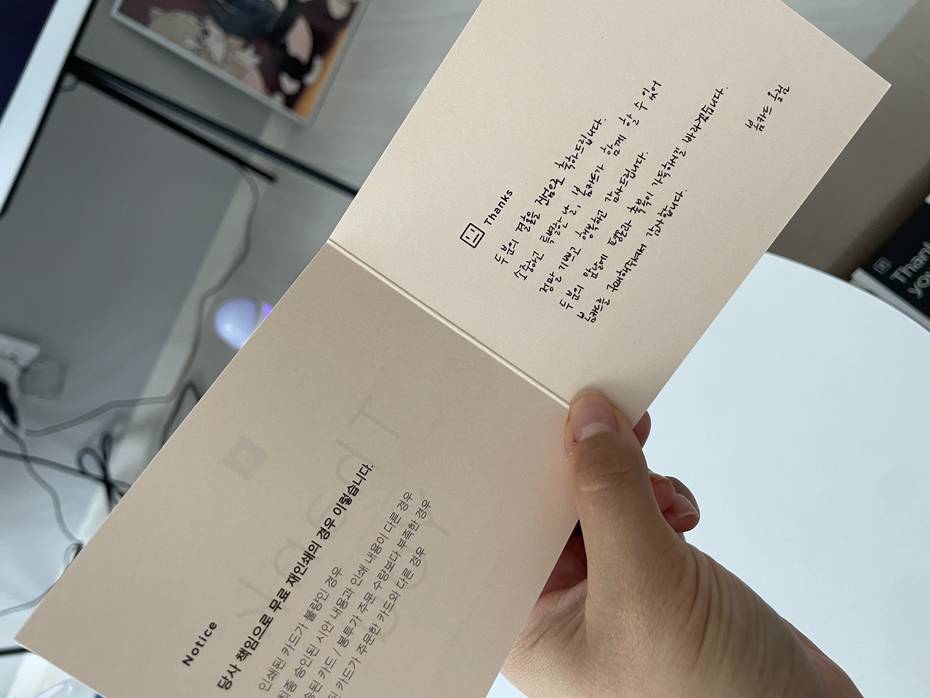 Thanks
두 분의 결혼을 진심으로 축하드립니다.
소중하고 특별한 날, 봄카드가 함께 할 수 있어
정말 기쁘고 행복하고 감사드립니다.
두 분의 앞날에 행운과 축복이 가득하시길 바라겠습니다.
봄카드를 구매해주셔서 감사합니다.
봄카드 올림
Notice
당사 책임으로 무료 재인쇄의 경우 이렇습니다.
인쇄된 카드가 불량인 경우
최종 승인된 시안 내용과 인쇄 내용이 다른 경우
된 카드 / 봉투가 주문 수량보다 부족한 경우
된 카드가 주문한 카드와 다른 경우
Thank
you